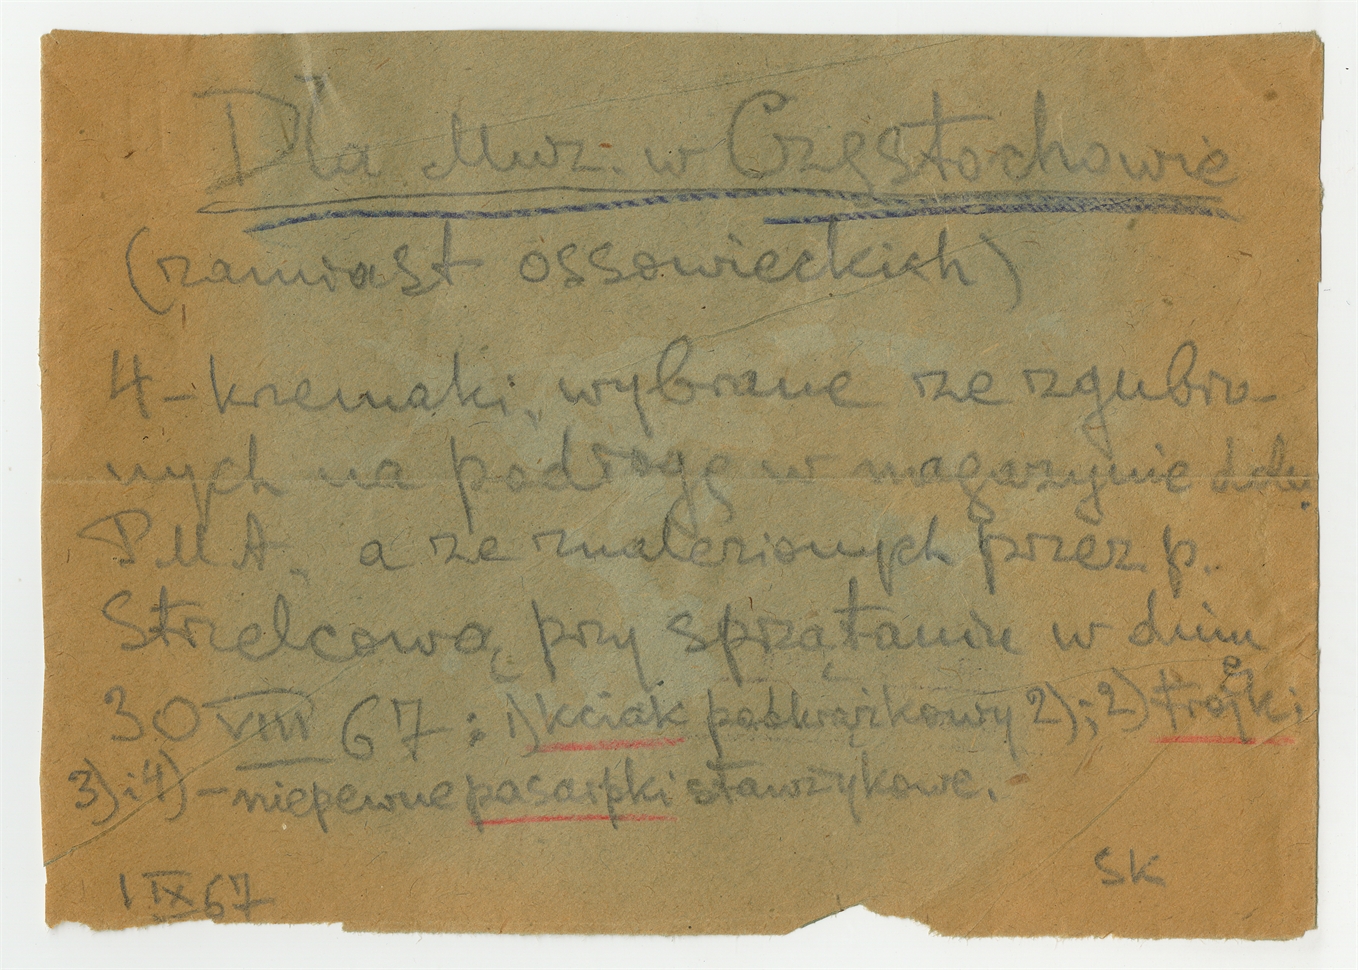 Dla Muz. w Częstochowie
(zamiast ossowieckich)
4-krzemaki, wybrane ze zgubio-
nych na podłogę w magazynie
PMA, a ze znalezionych przez p.
Strzelcową przy sprzątaniu w dniu
30 VIII 67: 1) kciak podkrążkowy 2); 2) trójki
3) i 4) - niepewne pasaipki stawzykowe.
1 IX 67
SK